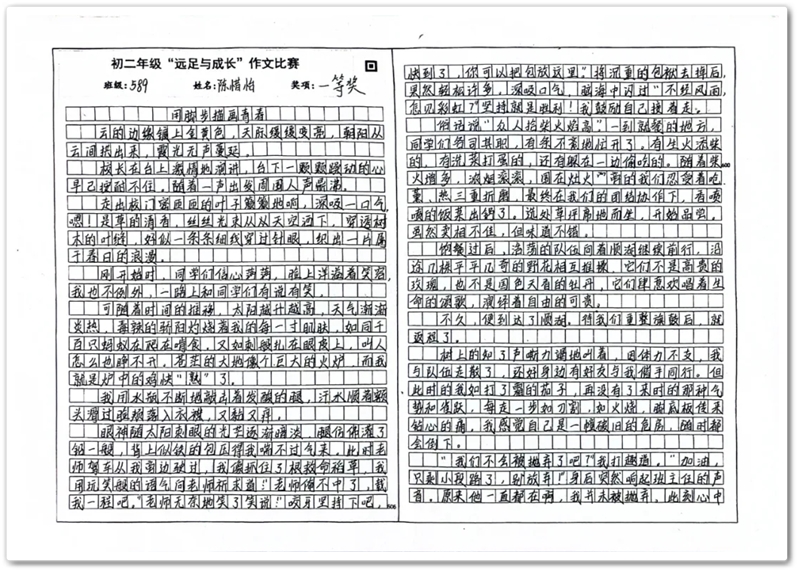 初二年级“远足与成长”作文比赛
班级:589 姓名:陈惜怡 奖项:一等奖
用脚步描画青春
云的边缘镶上金黄色,天际缓缓变亮,朝阳从
云间探出来,霞光无声蔓延。
校长在台上激情地演讲,台下一颗颗躁动的心
早已按耐不住。随着一声出发周围人声鼎沸。
走出校门蜜圆圆的叶子簌簌地响,深吸一口气
嗯!是草的清香,丝丝光束从从天空洒下,穿透树
木的叶缝,好似一条条细线穿过针眼,织出一片属
于春日的浪漫。
刚开始时,同学们信心满满,脸上洋溢着笑容,
我也不例外,一路上和同学们有说有笑。
可随着时间的推移,太阳越升越高,天气渐渐
炎热,毒辣的骄阳灼烧着我的每一寸肌肤,如同千
百只蚂蚁在爬在啃食,又如刺胶扎在眼皮上,叫人
怎么也睁不开,苍茫的大地像个巨大的火炉,而我
就是炉中的鸡快“熟”了。
我用水瓶不断地敲击着发酸的腿,汗水顺着额
头滑过脸颊落入衣襟,又黏又痒。
眼神随太阳刺眼的光芒逐渐暗淡,腿仿佛灌了
铅一般,背上似铁的包压得我喘不过气来,此时老
师驾车从我侧边驶过,我像抓住了根救命稻草,我
用玩笑般的语气向老师祈求道:“老师俺不中了,载
我一程吧。”老师无奈地笑了笑说:“咬牙坚持下吧,
快到了,你可以把包放这里。”将沉重的包袱去掉后,
果然轻松许多,深吸口气,脑海中闪过“不经风雨,
怎见彩虹?”坚持就是胜利!我鼓励自己接着走。
俗话说“众人拾柴火焰高”,一到就餐的地方,
同学们各司其职,有条不紊地忙开了。有生火添柴
的,有洗菜打蛋的,还有躲在一边偷吃的。随着柴
火增多,浓烟滚滚,围在灶火前的我们忍受着呛、
熏、热三重折磨,最终在我们的团结协作下,香喷
喷的饭菜出锅了。远处草坪席地而坐,开始品尝。
虽然卖相不佳,但味道不错。
饱餐过后,浩荡的队伍向着顺湖继续前行,沿
途几株平平几奇的野花相互推搡,它们不是高贵的
玫瑰,也不是国色天香的牡丹,它们肆意欢唱着生
命的颂歌,演绎着自由的可贵。
不久,便到达了顺湖。待我们重整旗鼓后,就
返程了。
树上的知了声嘶力竭地叫着,因体力不支,我
与队伍走散了,还好身边有好友与我携手同行。但
此时的我如打了霜的茄子,再没有了来时的那种气
势和雀跃,每走一步如刀割,如火烧,脚底板传来
钻心的痛,我感觉自己是一幢破旧的危房,随时都
会倒下。
“我们不会被抛弃了吧?”我打趣道。“加油,
只剩小段路了,别放弃!”身后突然响起班主任的声
音,原来他一直都在啊,我并未被抛弃,此刻心中